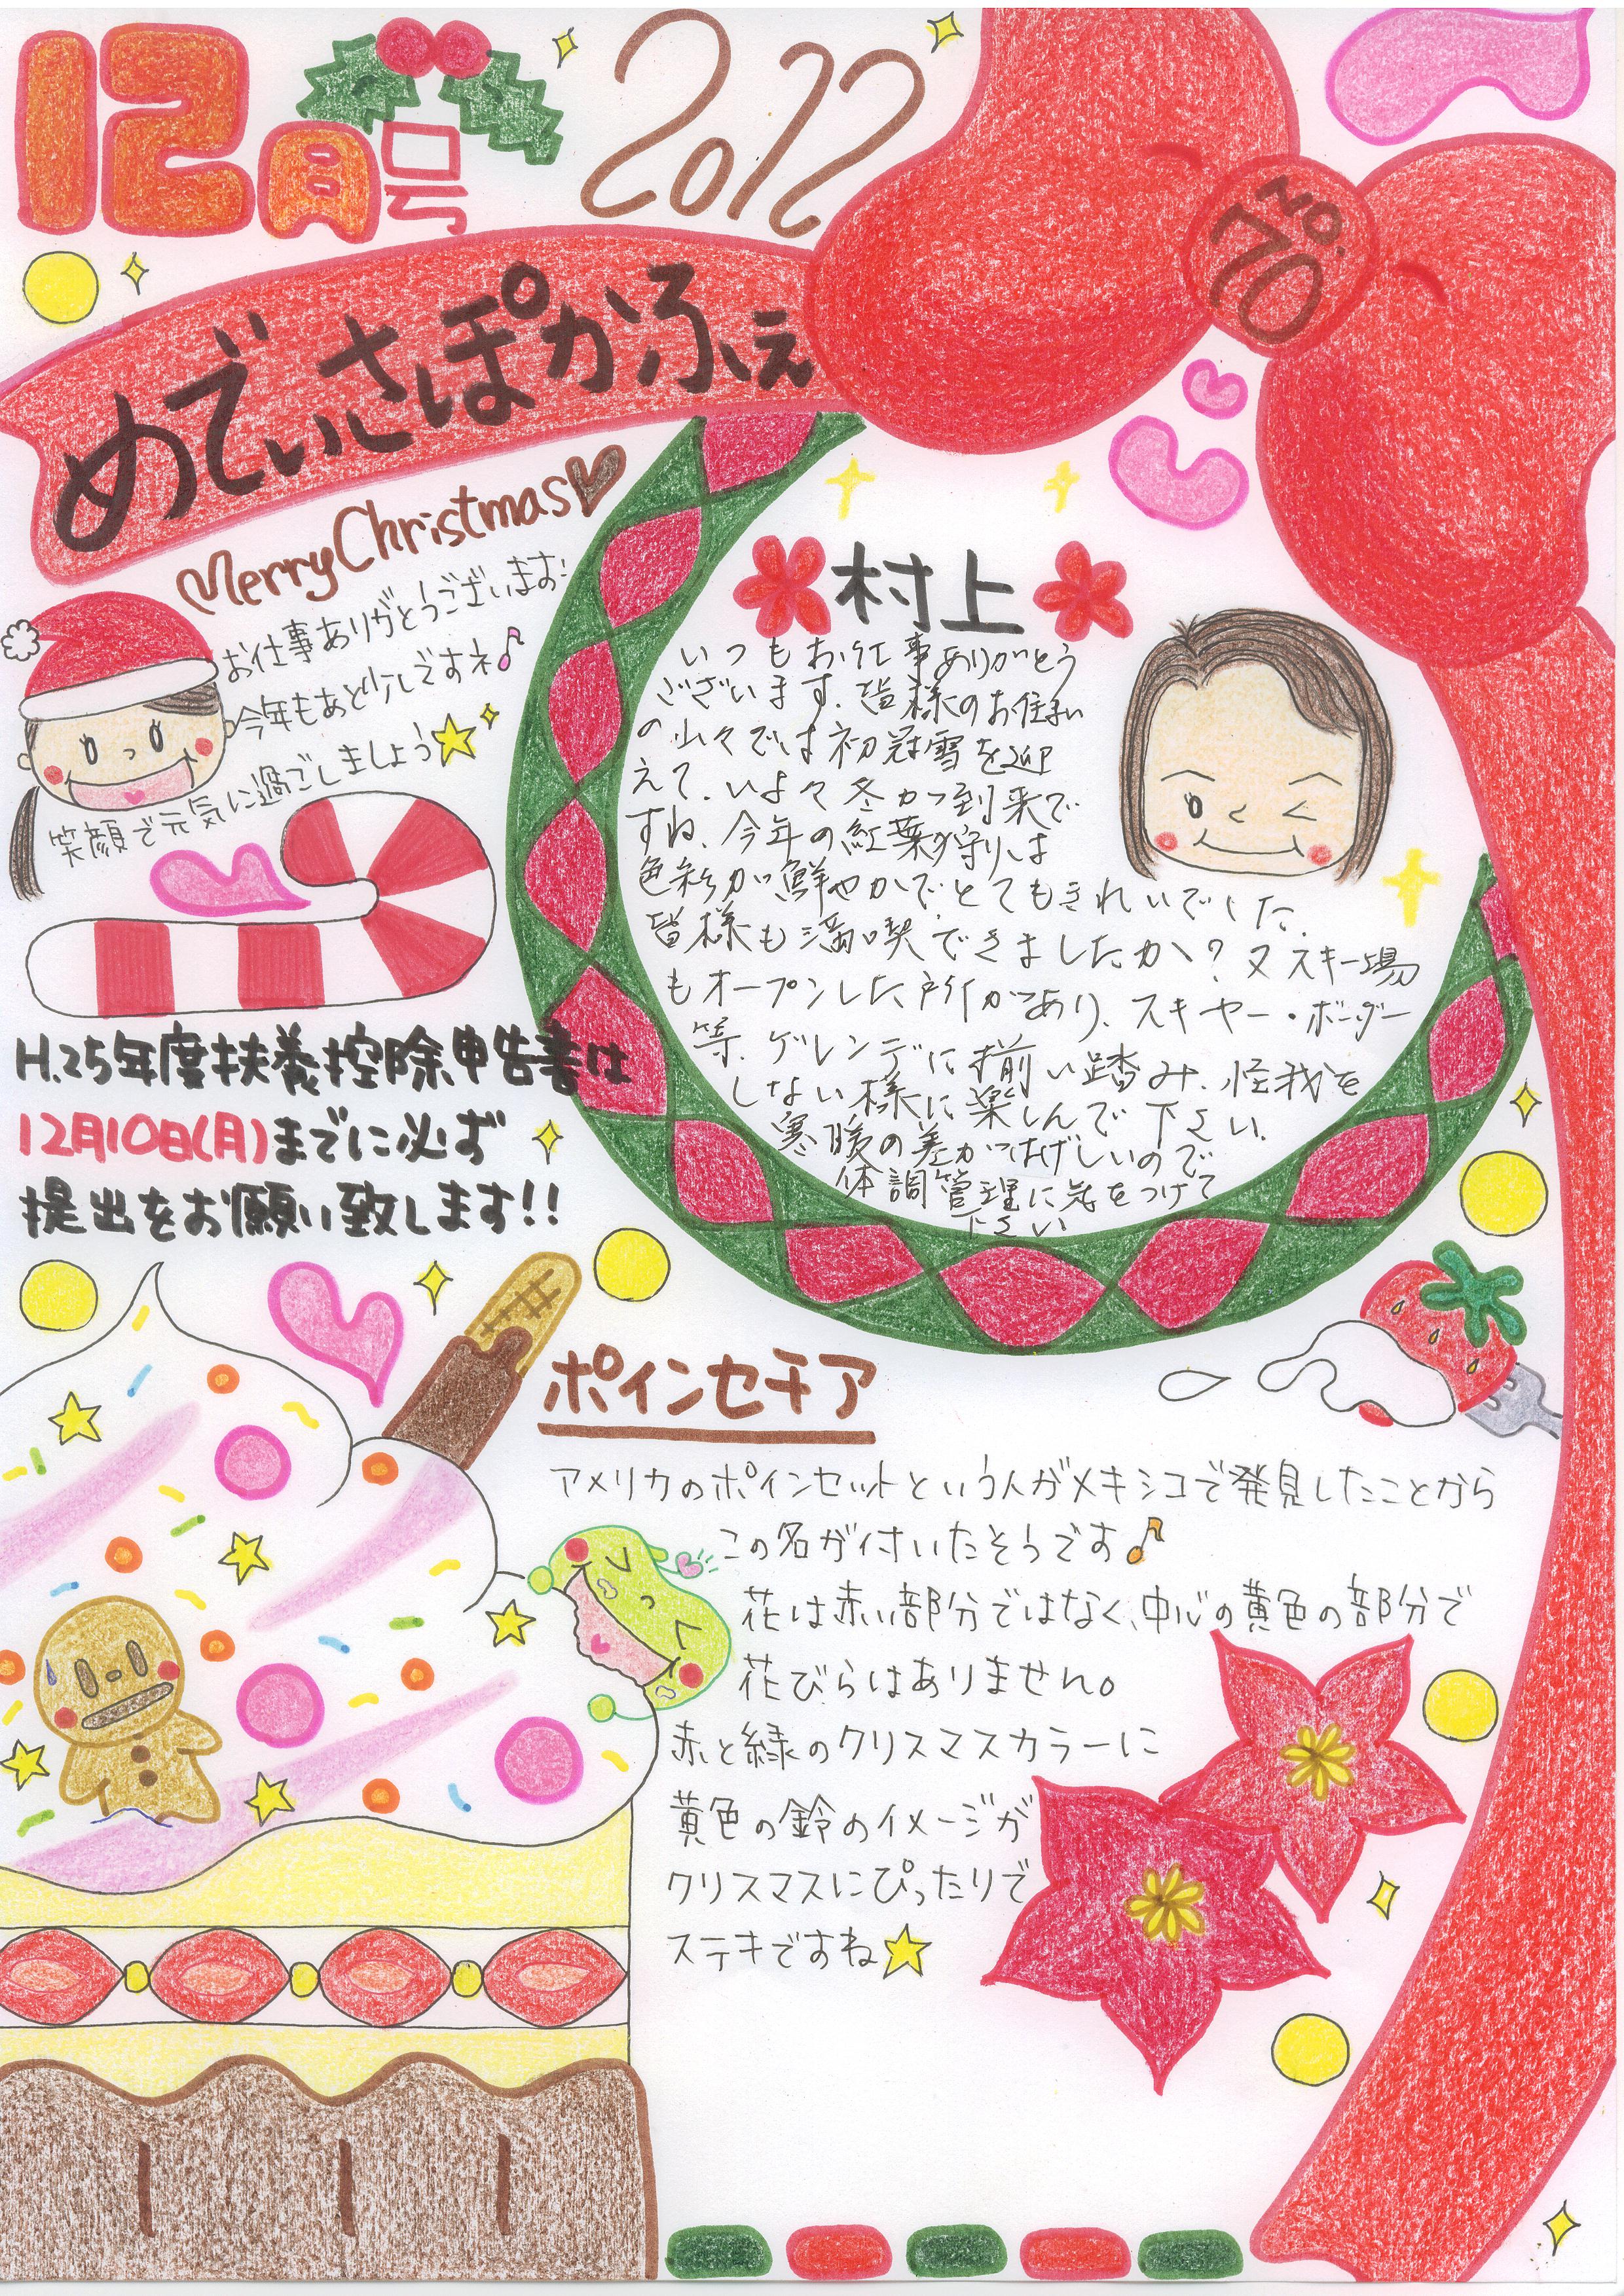 12月号
2012
No.
70
めでぃさぽかふぇ
Merry Christmas
お仕事ありがとうございます!
今年もあと少しですネ♪
笑顔で元気に過ごしましょう
H.25年度扶養控除申告書は
12月10日(月)までに必ず
提出をお願い致します!!
村上
いつもお仕事ありがとう
ございます。皆様のお住まい
の山々では初冠雪を迎
えて、いよいよ冬が到来で
すね、今年の紅葉狩りは
色彩が鮮やかでとてもきれいでした。
皆様も満喫できましたか?又スキー場
もオープンした所があり、スキヤー・ボーダー
等、ゲレンデに揃い踏み、怪我を
しない様に楽しんで下さい。
寒暖の差がはげしいので
体調管理に気をつけて
下さい
ポインセチア
アメリカのポインセットという人がメキシコで発見したことから
この名が付いたそうです♪
花は赤い部分ではなく、中心の黄色の部分で
花びらはありません。
赤と緑のクリスマスカラーに
黄色の鈴のイメージが
クリスマスにぴったりで
ステキですね